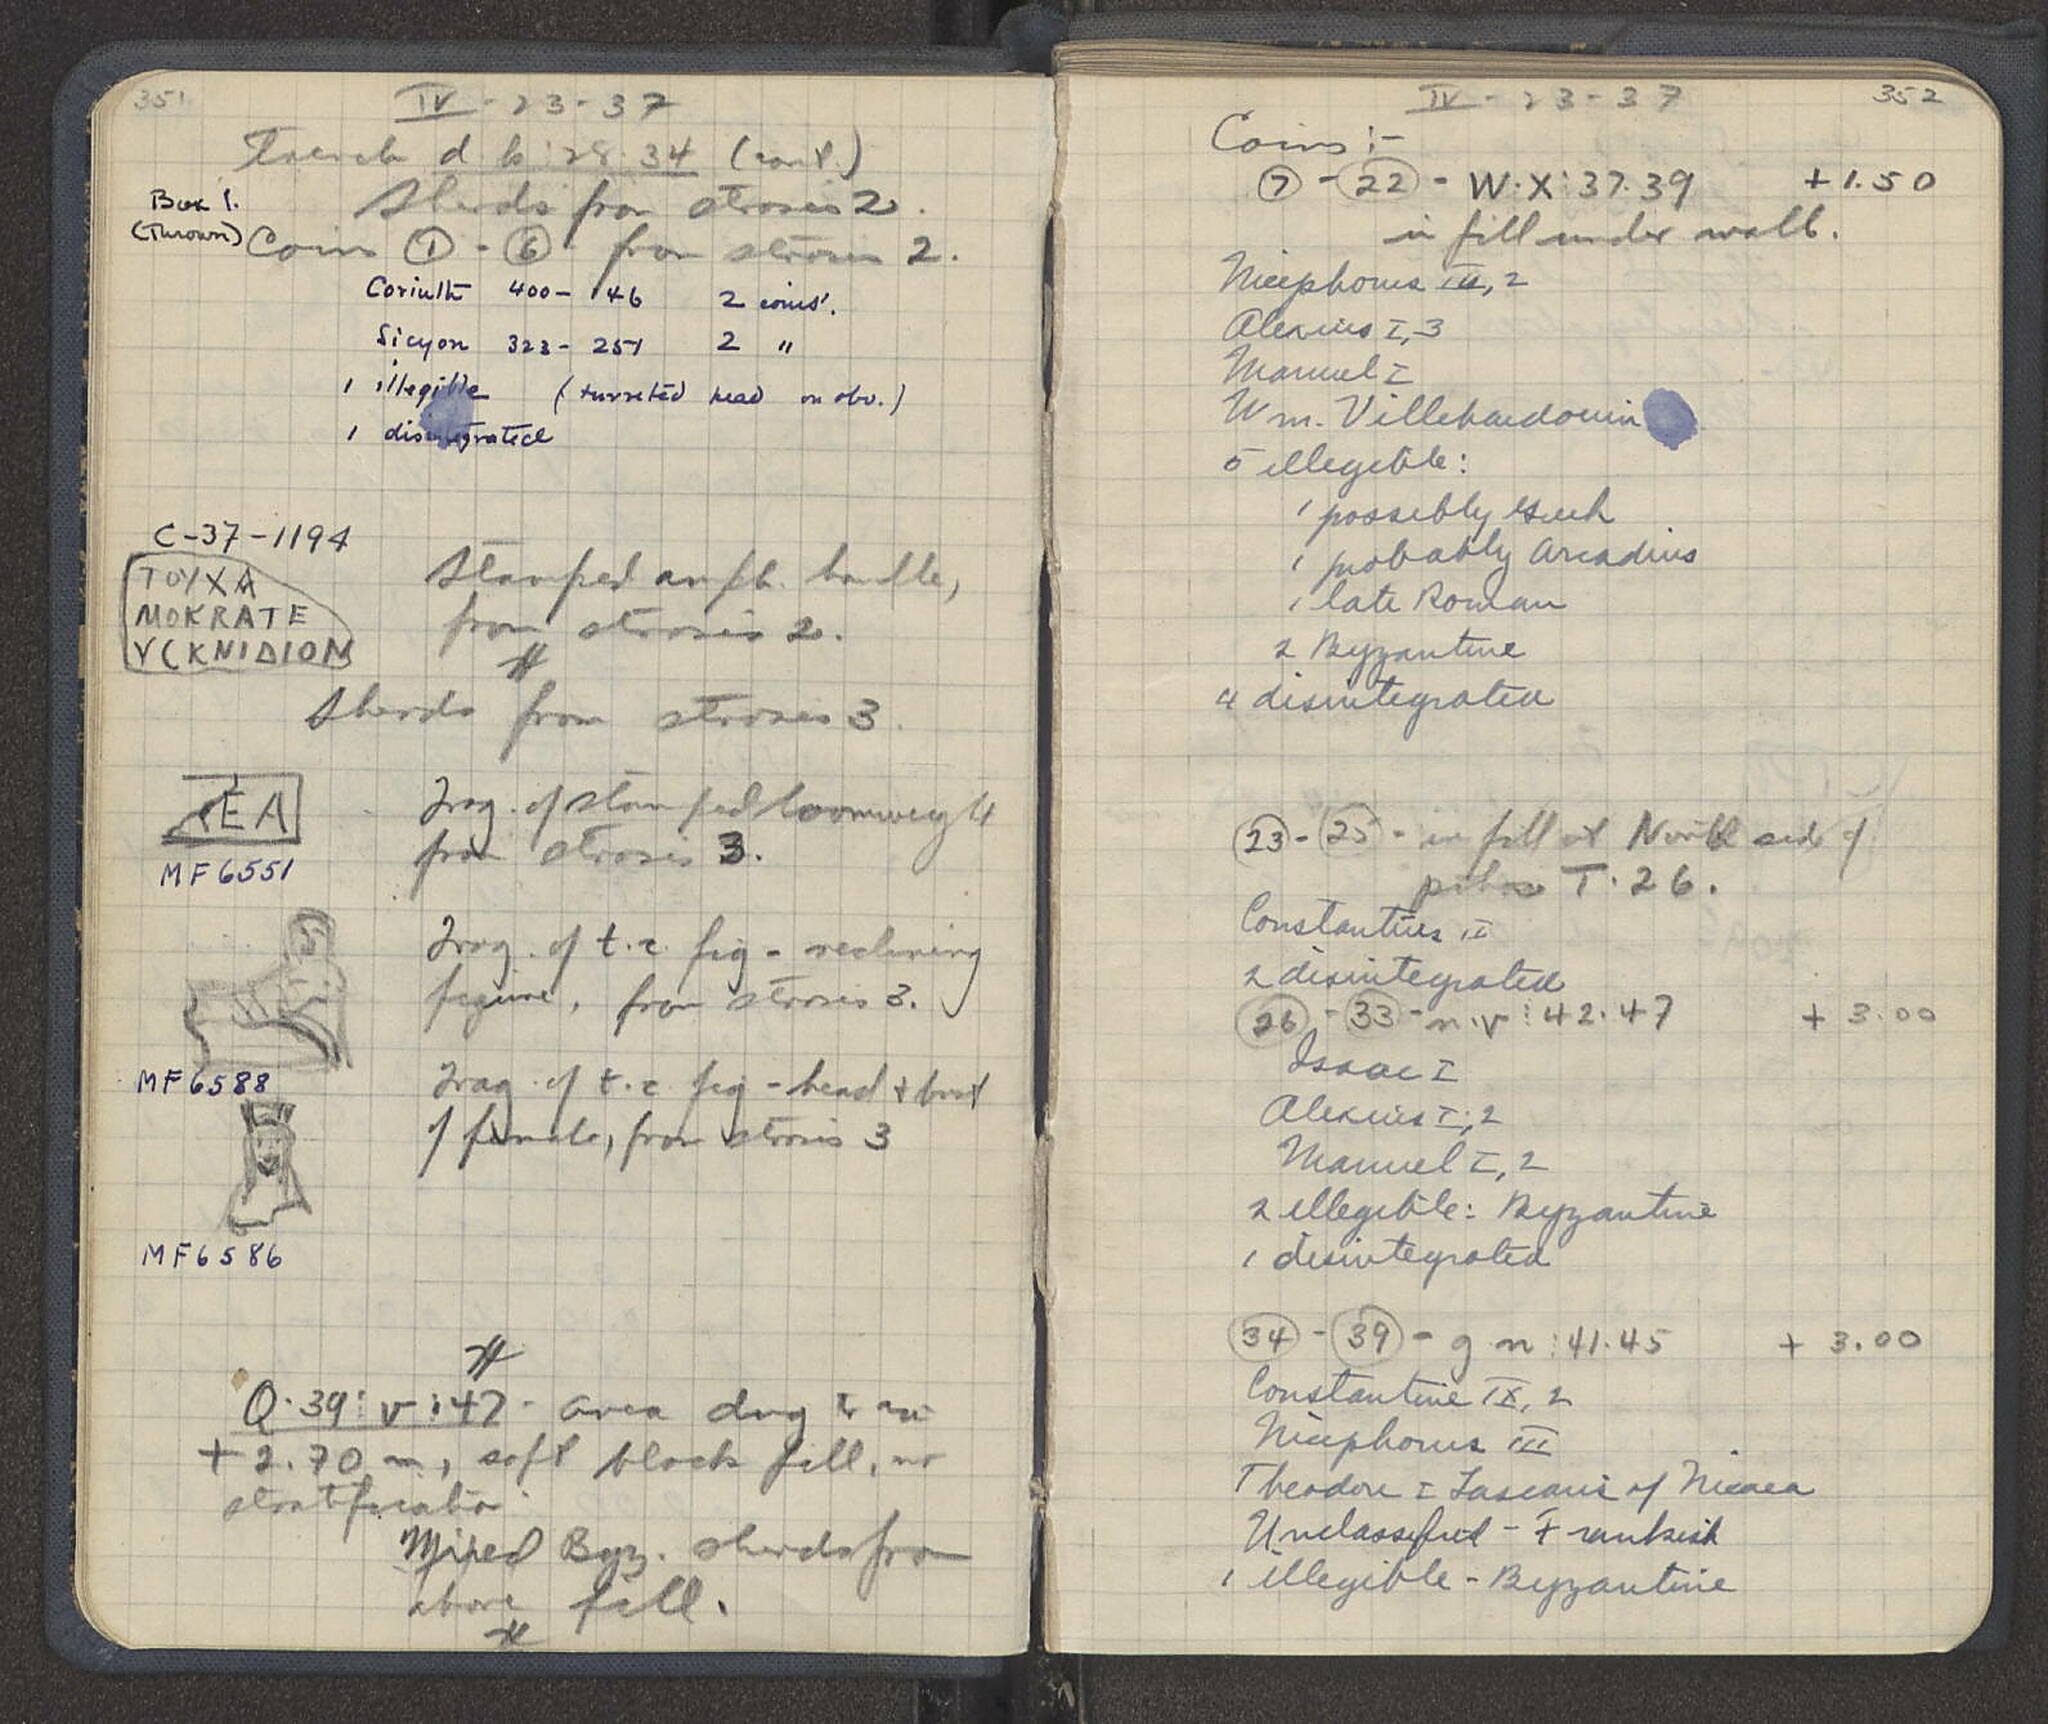 351
IV - 23 - 37
Trench d. k : 28. 34 (cont.)
Sherds from strosis 2.
Box 1.
(Thrown)
Coins 1 - 6 from strosis 2.
Corinth 400 - 146 2 coins.
Sicyon 323 - 251 2 "
1 illegible (turreted head on obv.)
1 disintegrated
C-37-1194
TOYXA
MOKRATE
YCKNIDION
Stamped amph. handle,
from strosis 2.
Sherds from strosis 3.
EA
MF6551
Frag. of stamped loomweight
from strosis 3.
Frag. of t.c. fig - reclining
figure, from strosis 3.
MF6588
Frag. of t.c. fig - head + bust
of female, from strosis 3
MF6586
Q.39 : v : 47 - area dug to
+ 2.70 m, soft black fill, no
stratification.
Mixed Byz. sherds from
above fill.
IV - 23 - 37
352
Coins :-
7 - 22 - W.X : 37.39 + 1.50
in fill under wall.
Nicephorus III, 2
Alexius I, 3
Manuel I
Wm. Villehardouin
5 illegible :
1 possibly Greek
1 probably Arcadius
1 late Roman
2 Byzantine
4 disintegrated
23 - 25 - in fill at North side of
pithos T.26.
Constantius II
2 disintegrated
26 - 33 - n.v : 42.47 + 3.00
Isaac I
Alexius I, 2
Manuel I, 2
2 illegible : Byzantine
1 disintegrated
34 - 39 - g n : 41.45 + 3.00
Constantine IX, 2
Nicephorus III
Theodore I Lascaris of Nicaea
Unclassified - Frankish
1 illegible - Byzantine